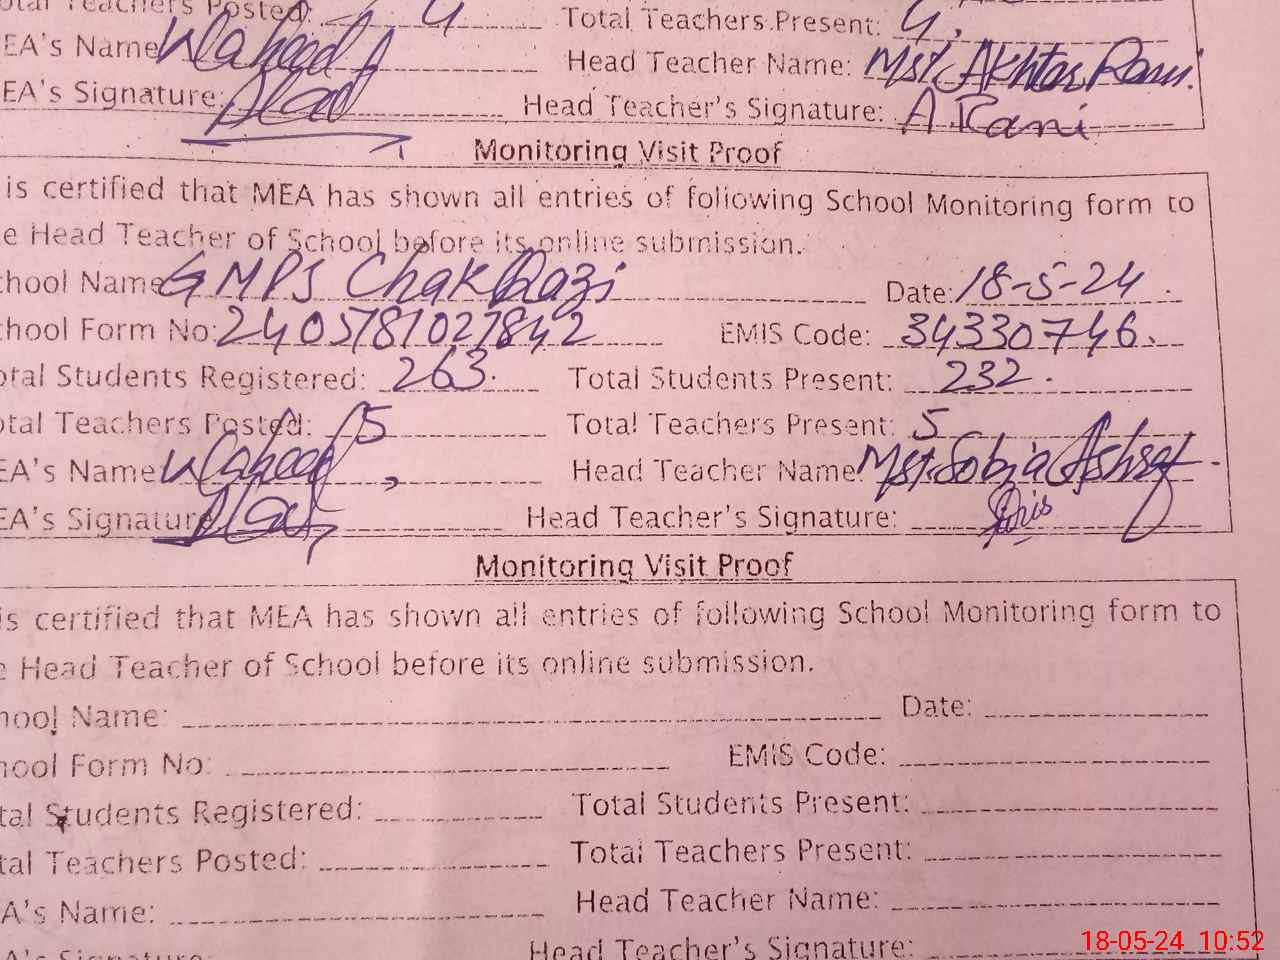 otal Teachers Posted: 4 Total Teachers Present: 4.
EA's Name Waheed A Head Teacher Name: Mst. Akhtar Rani.
EA's Signature: Head Teacher's Signature: A. Rani
Monitoring Visit Proof
is certified that MEA has shown all entries of following School Monitoring form to
e Head Teacher of School before its online submission.
chool Name GMPS Chak Qazi Date: 18-5-24.
chool Form No: 2405781027842 EMIS Code: 34330746.
otal Students Registered: 263. Total Students Present: 232.
otal Teachers Posted: 5 Total Teachers Present: 5
EA's Name Waheed, Head Teacher Name: Mst. Sobia Ashraf.
EA's Signature Head Teacher's Signature:
Monitoring Visit Proof
is certified that MEA has shown all entries of following School Monitoring form to
e Head Teacher of School before its online submission.
hool Name: Date:
hool Form No: EMIS Code:
tal Students Registered: Total Students Present:
tal Teachers Posted: Total Teachers Present:
A's Name: Head Teacher Name:
A's Signature: Head Teacher's Signature:
18-05-24 10:52